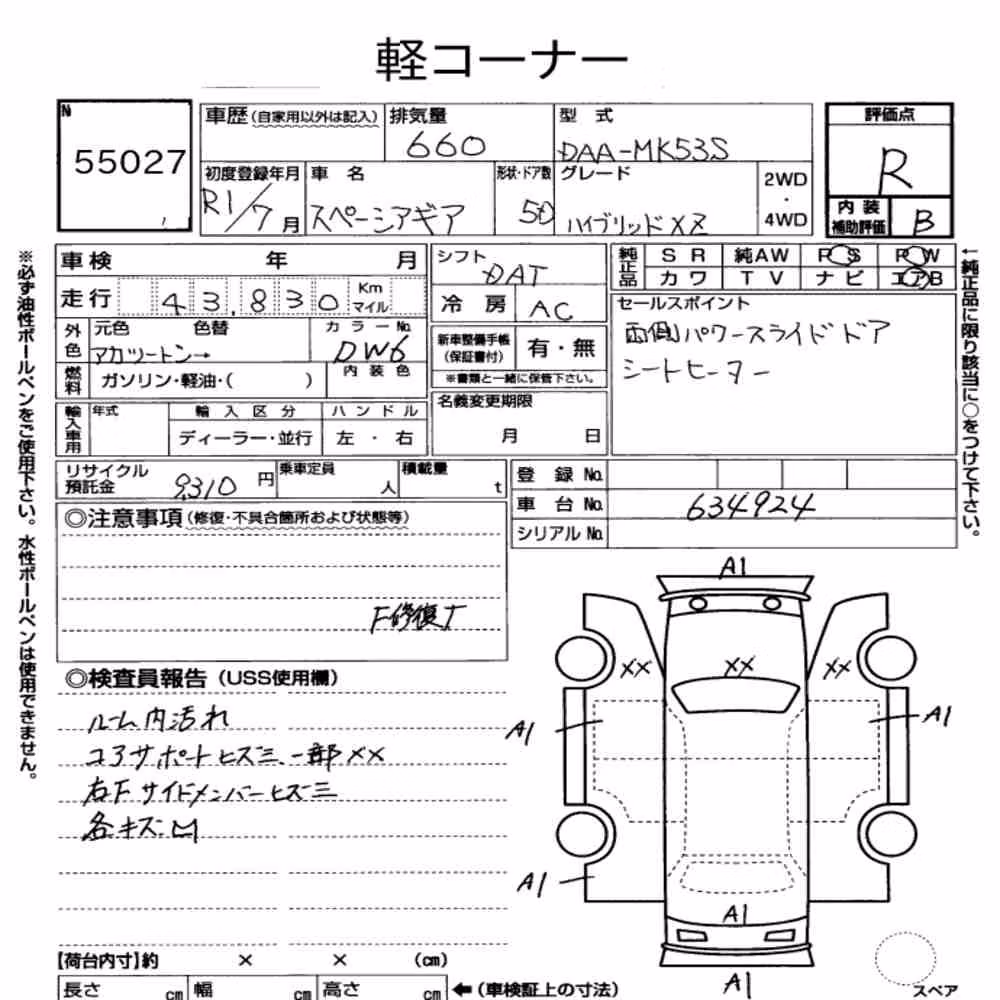 軽コーナー
No. 55027
車歴(自家用以外は記入) 排気量 660 型式 DAA-MK53S
初度登録年月 R1/7月 車名 スペーシアギア 形状・ドア数 5D グレード ハイブリッドXZ 2WD・4WD
評価点 R
内装補助評価 B
車検 年 月
走行 43,830 Km マイル
シフト DAT
冷房 AC
純正品 SR 純AW PS PW
カワ TV ナビ エアB
外色 元色 色替 カラーNo.
アカツートン→ DW6
燃料 ガソリン・軽油・( ) 内装色
新車整備手帳(保証書付) 有・無
※書類と一緒に保管下さい。
セールスポイント
両側パワースライドドア
シートヒーター
輸入車用 年式 輸入区分 ハンドル
ディーラー・並行 左・右
名義変更期限
月 日
リサイクル預託金 9,310円 乗車定員 人 積載量 t
登録No.
車台No. 634924
シリアルNo.
◎注意事項(修復・不具合箇所および状態等)
F修復T
◎検査員報告(USS使用欄)
ルーム内汚れ
コアサポートヒズミ、一部××
右Fサイドメンバーヒズミ
各キズ凹
A1
×× ×× ××
A1 A1
A1
A1
A1
スペア
【荷台内寸】約 × × (cm)
長さ cm 幅 cm 高さ cm ←(車検証上の寸法)
※必ず油性ボールペンをご使用下さい。水性ボールペンは使用できません。
←純正品に限り該当に○をつけて下さい。